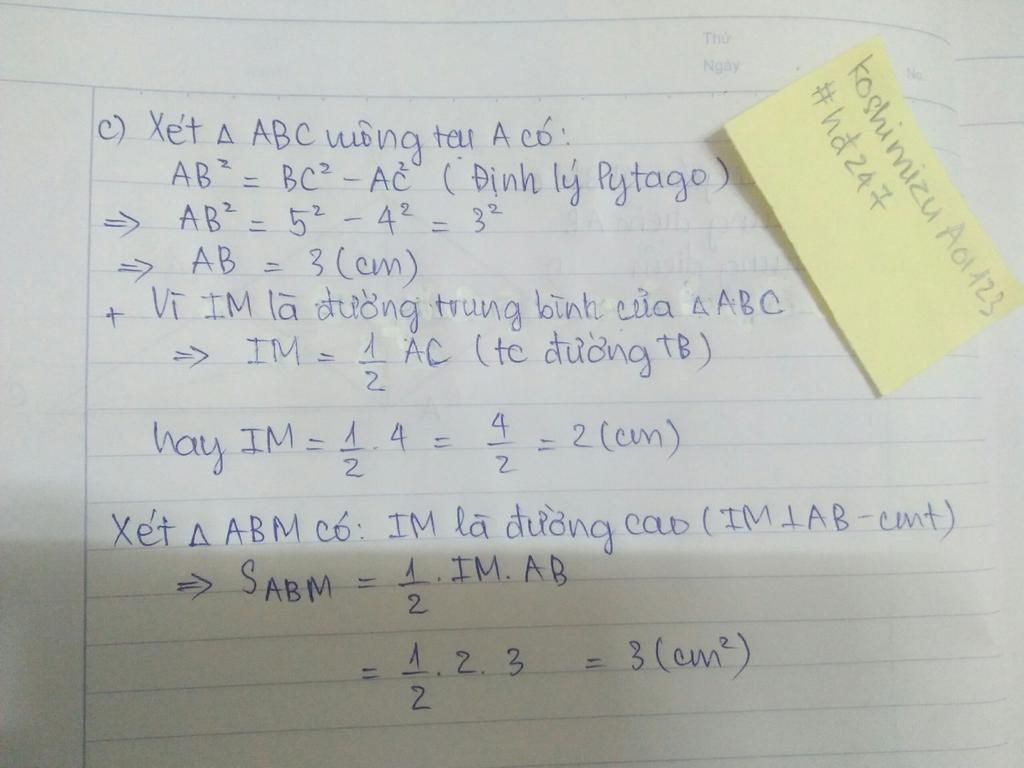 Thứ
Ngày
No.
Koshimizu Aoi123
#hđ247
c) Xét Δ ABC vuông tại A có:
AB² = BC² - AC² ( Định lý Pytago )
=> AB² = 5² - 4² = 3²
=> AB = 3 (cm)
+ Vì IM là đường trung bình của Δ ABC
=> IM = 1/2 AC (tc đường TB)
hay IM = 1/2 . 4 = 4/2 = 2 (cm)
Xét Δ ABM có: IM là đường cao (IM ⊥ AB - cmt)
=> S_ABM = 1/2 . IM . AB
= 1/2 . 2 . 3 = 3 (cm²)